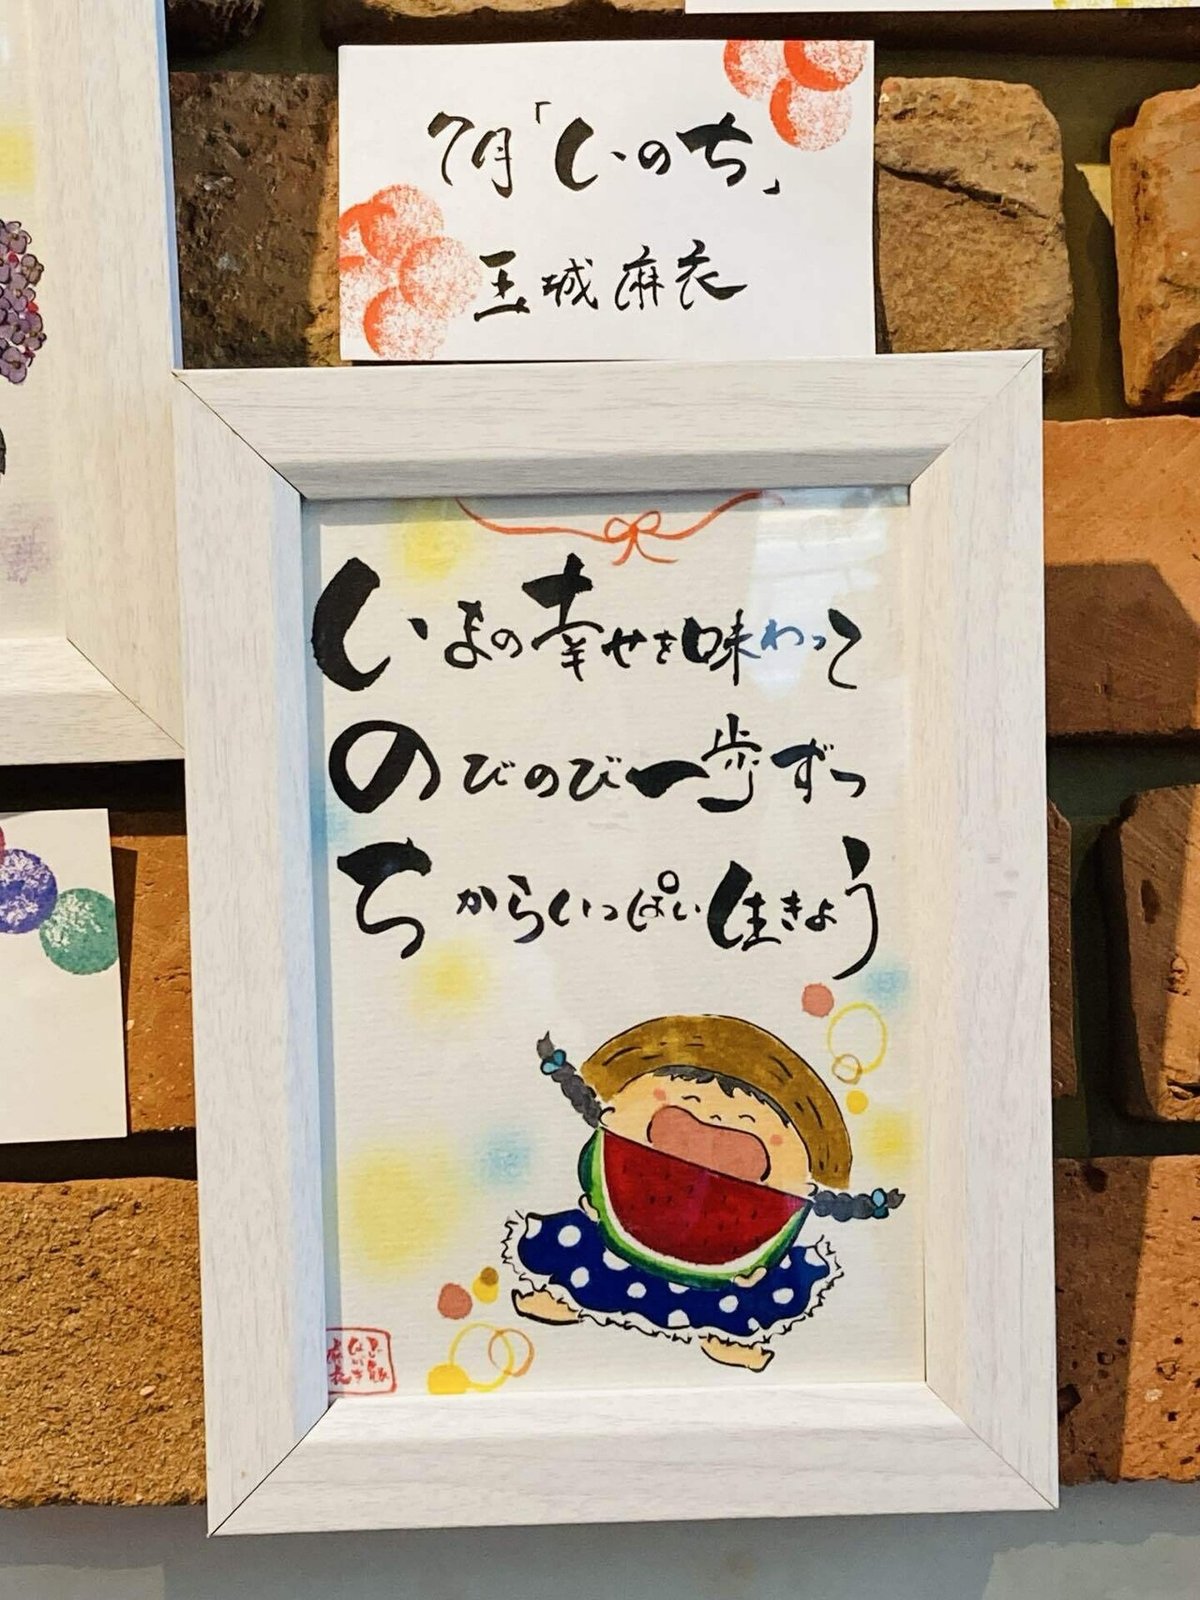 7月「いのち」
玉城麻衣
いまの幸せを味わって
のびのび一歩ずつ
ちからいっぱい生きよう